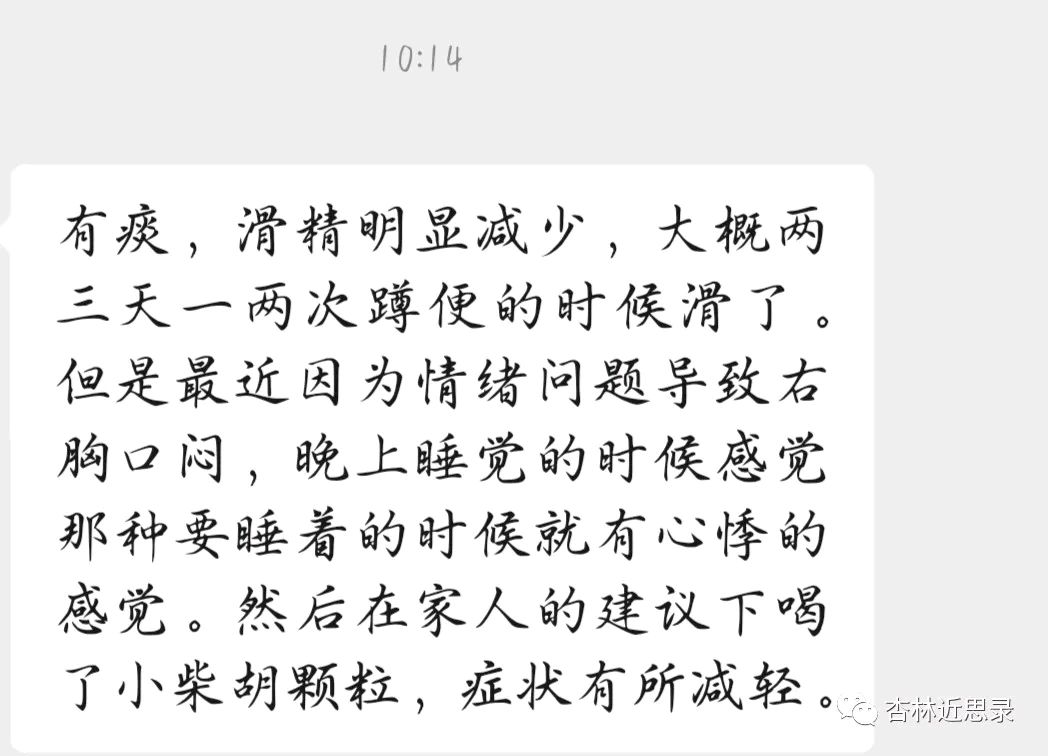 10:14
有痰，滑精明显减少，大概两
三天一两次蹲便的时候滑了。
但是最近因为情绪问题导致右
胸口闷，晚上睡觉的时候感觉
那种要睡着的时候就有心悸的
感觉。然后在家人的建议下喝
了小柴胡颗粒，症状有所减轻。
杏林近思录